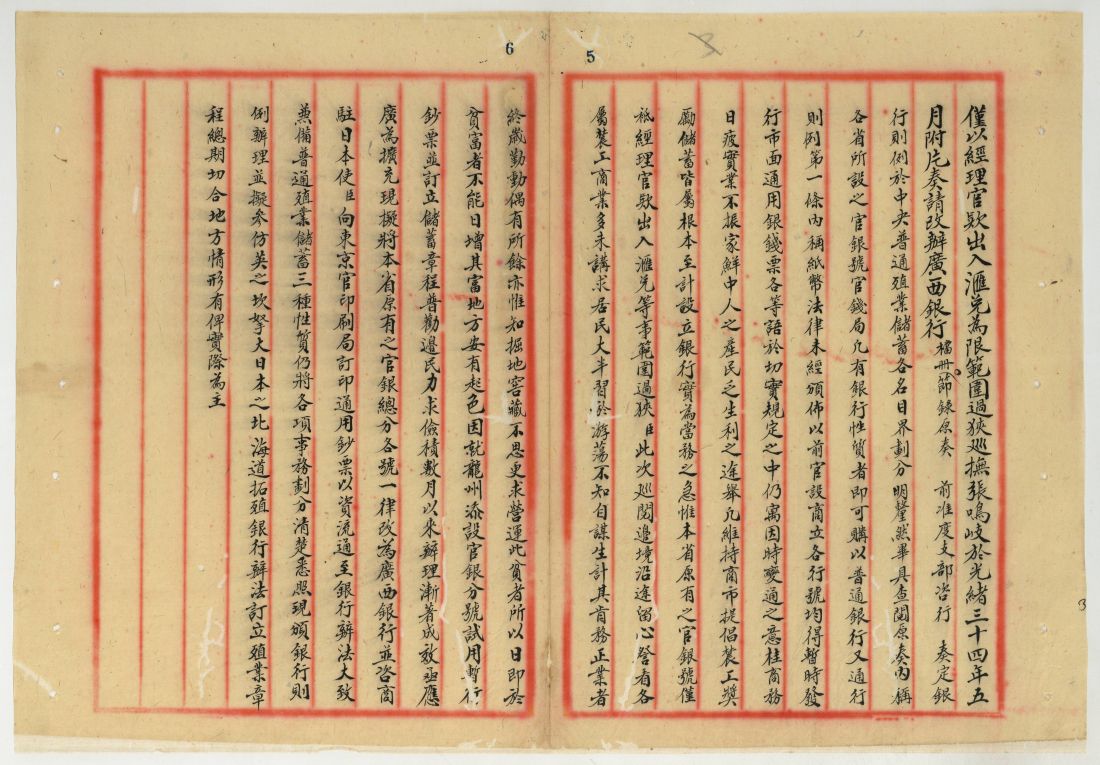 5
僅以經理官欵出入滙兌為限範圍過狹巡撫張鳴岐於光緒三十四年五
月附片奏請改辦廣西銀行檔冊節錄原奏 前准度支部咨行 奏定銀
行則例於中央普通殖業儲蓄各名目界劃分明釐然畢具查閱原奏內稱
各省所設之官銀號官錢局凡有銀行性質者即可賅以普通銀行又通行
則例第一條內稱紙幣法律未經頒佈以前官設商立各行號均得暫時發
行市面通用銀錢票各等語於切實規定之中仍寓因時變通之意桂商務
日疲實業不振家鮮中人之產民乏生利之途舉凡維持商市提倡農工獎
勵儲蓄皆屬根本至計設立銀行實為當務之急惟本省原有之官銀號僅
祇經理官欵出入滙兌等事範圍過狹臣此次巡閱邊境沿途留心詧看各
屬農工商業多未講求居民大半習於游蕩不知自謀生計其肯務正業者
6
終歲勤動偶有所餘亦惟知掘地窖藏不思更求營運此貧者所以日即於
貧富者不能日增其富地方安有起色因就龍州添設官銀分號試用暫行
鈔票並訂立儲蓄章程普勸邊民力求儉積數月以來辦理漸著成效亟應
廣為擴充現擬將本省原有之官銀總分各號一律改為廣西銀行並咨商
駐日本使臣向東京官印刷局訂印通用鈔票以資流通至銀行辦法大致
兼備普通殖業儲蓄三種性質仍將各項事務劃分清楚悉照現頒銀行則
例辦理並擬參仿英之坎拏大日本之北海道拓殖銀行辦法訂立殖業章
程總期切合地方情形有俾實際為主